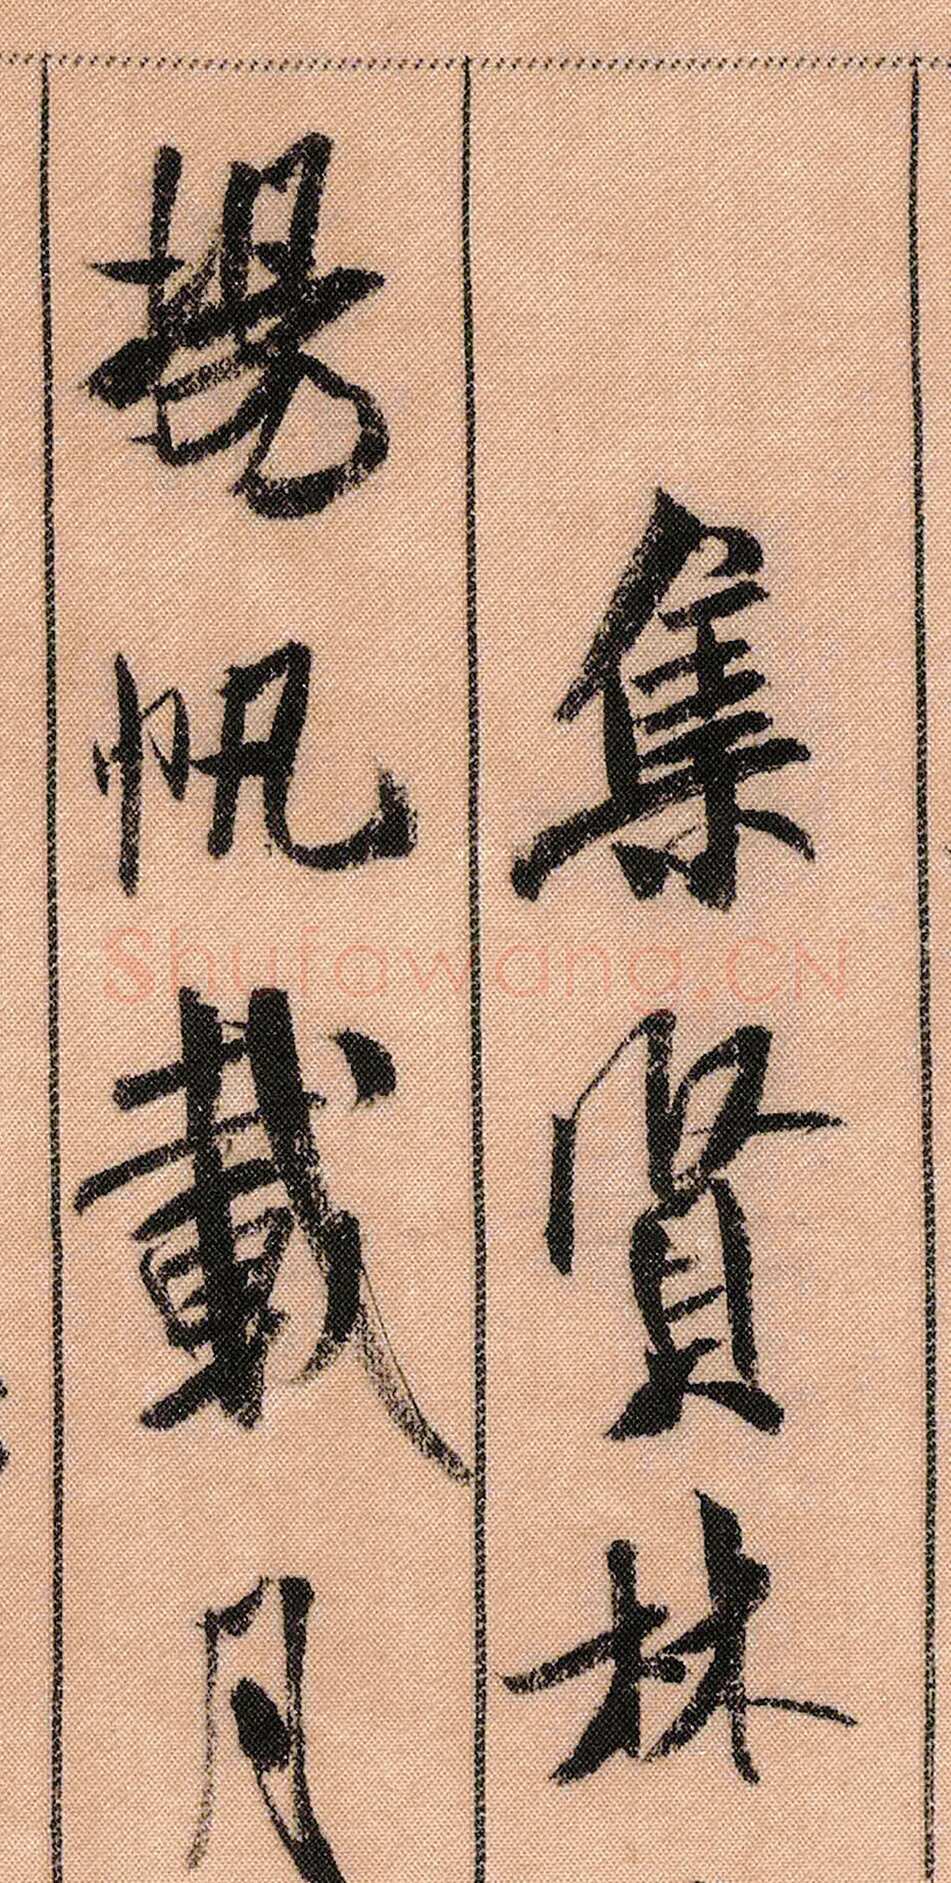 集賢林
揚帆載月
Shufawang.CN